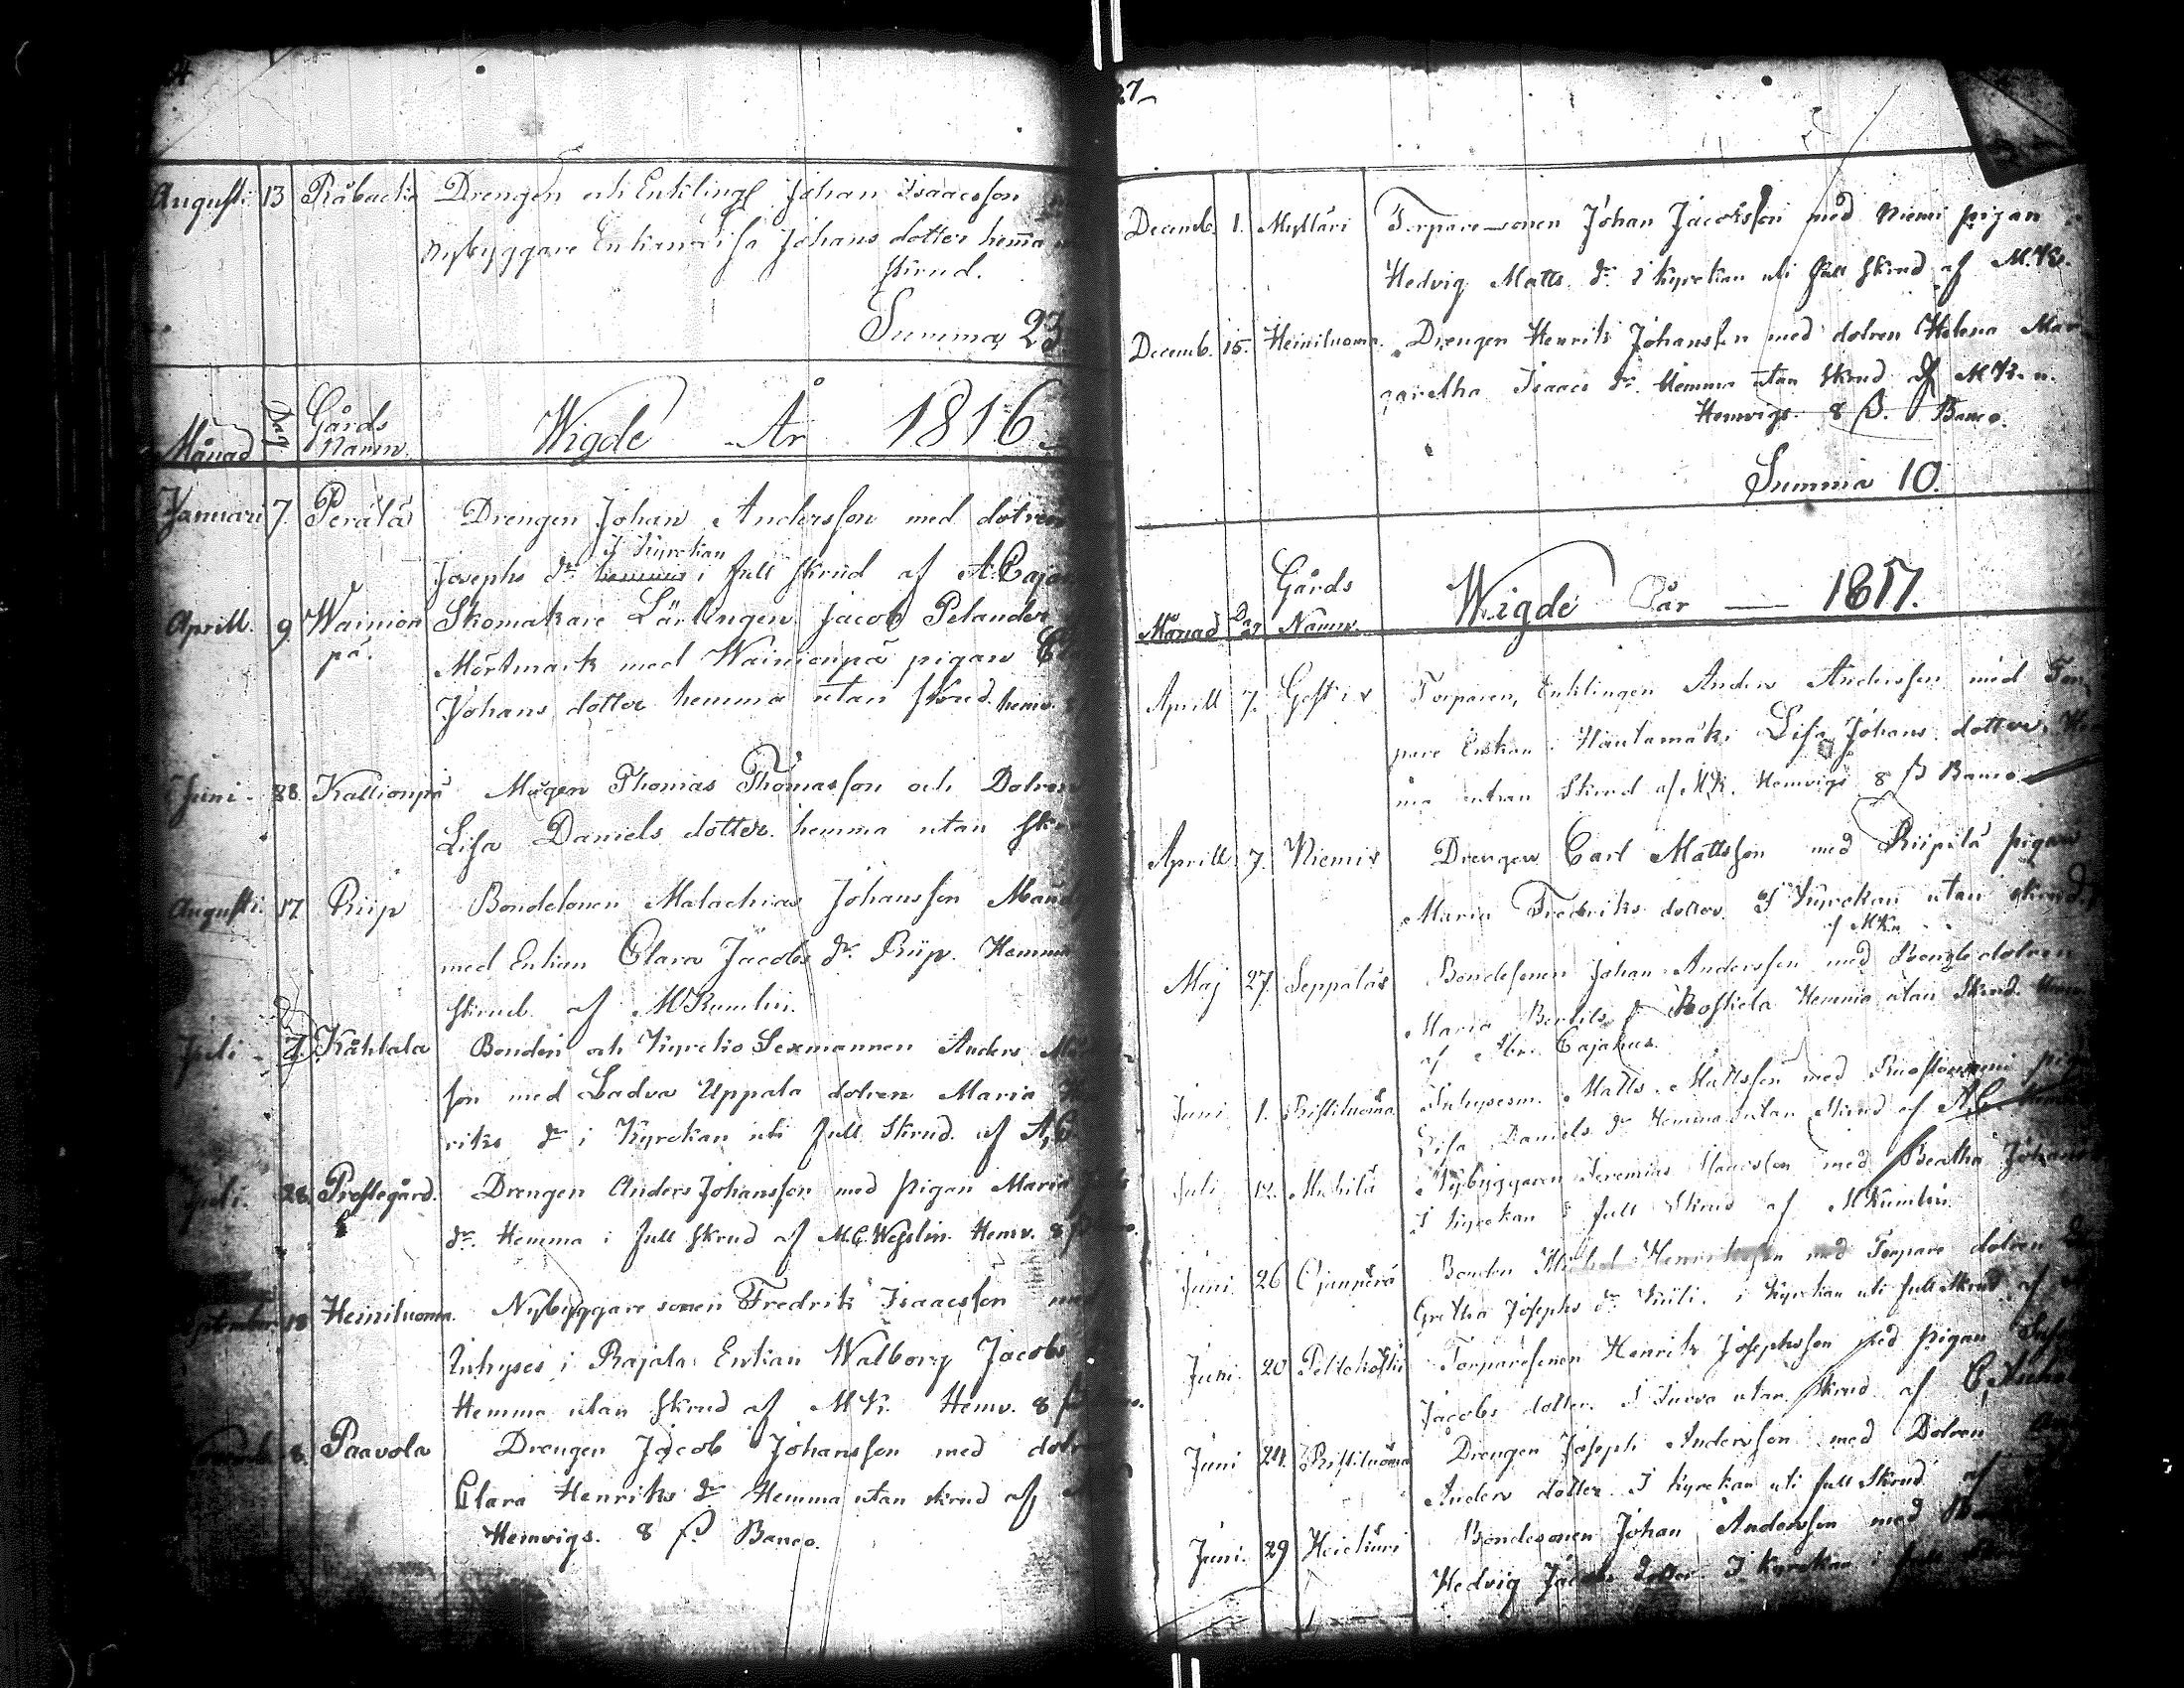 27
Augusti 13 Råbacka Drengen och Enklingen Johan Isaacsson
nybyggare Enkan Lisa Johans dotter hemma
skrud.
Summa 23
Månad Dag Gårds Namn. Wigde År 1816
Januari 7. Perälä Drengen Johan Andersson med dotren
Josephs dr. hemma I Kyrckan i full skrud af A. Caja
Aprill. 9 Wainion Skomakare Lärlingen Jacob Pelander
pä. Mörtmark med Wainionpä pigan
Johans dotter hemma utan skrud. hemv.
Juni. 28 Kallionpä Mågen Thomas Thomasson och Dotren
Lisa Daniels dotter. hemma utan skr
Augusti. 17 Riip Bondesonen Malachias Johansson
med Enkan Clara Jacobs dr. Riip. Hemma
skrud. af M Kumlin.
Juli. 7. Kåhtala Bonden och Kyrcko Sexmannen Anders
son med Ladva Uppala dotren Maria
riks dr i Kyrckan uti full Skrud. af A, C
Juli. 28. Prostegård. Drengen Anders Johansson med pigan Maria
dr. Hemma i full skrud af M. C. Wesslin. Hemv. 8 ß
September 18 Heiniluoma. Nybyggare sonen Fredrik Isaacsson
Inhyses i Rajala Enkan Walborg Jacobs
Hemma utan skrud af M K. Hemv. 8 ß
8. Paavola Drengen Jacob Johansson med dotr
Clara Henriks dr Hemma utan skrud af
Hemvigs. 8 ß. Banco.
Decemb. 1. Mylläri Torpare sonen Johan Jacobsson med Niemi pigan
Hedvig Matts. dr. i Kyrckan uti full skrud af M. K.
Decemb. 15. Heiniluoma. Drengen Henrik Johansson med dotren Helena Mar
garetha Isaacs dr. Hemma utan skrud af M K. n.
Hemvigs. 8 ß. Banco.
Summa 10.
Månad Dag Gårds Namn. Wigde år — 1817.
Aprill 7. Torparen, Enklingen Anders Andersson med Tor
pare Enkan i Hautamäki Lisa Johans dotter. He
ma utan Skrud af M K. Hemvigs 8 ß Banco.
Aprill 7. Niemis Drengen Carl Mattsson med Riipilä pigan
Maria Fredriks dotter. I Kyrckan utan skrud
af M K.n
Maj 27. Seppäläs Bondesonen Johan Andersson med Bonde dotren
Maria Bertils dr Hemma utan Skrud.
af Abr. Cajanus.
Juni 1. Ristiluoma Inhysesm. Matts Mattsson med
Lisa Daniels dr Hemma utan Skrud af A, C.
Juli 12. Nybyggaren Jeremias Isaacsson med Beatha Johans
I Kyrckan i full Skrud af M Kumlin
Juni. 26 Ojanperä Bonden Michel Henriksson med Torpare dotren
Gretha Josephs dr. i Kyrckan uti full skrud af
Juni. 20 Peltokoski Torparesonen Henrik Josephsson med pigan
Jacobs dotter. utan skrud af
Juni 24. Ristiluoma Drengen Joseph Andersson med Dotren
Anders dotter. I Kyrckan uti full Skrud af
Juni. 29 Bondesonen Johan Andersson med
Hedvig Jacobs dotter I Kyrckan i full